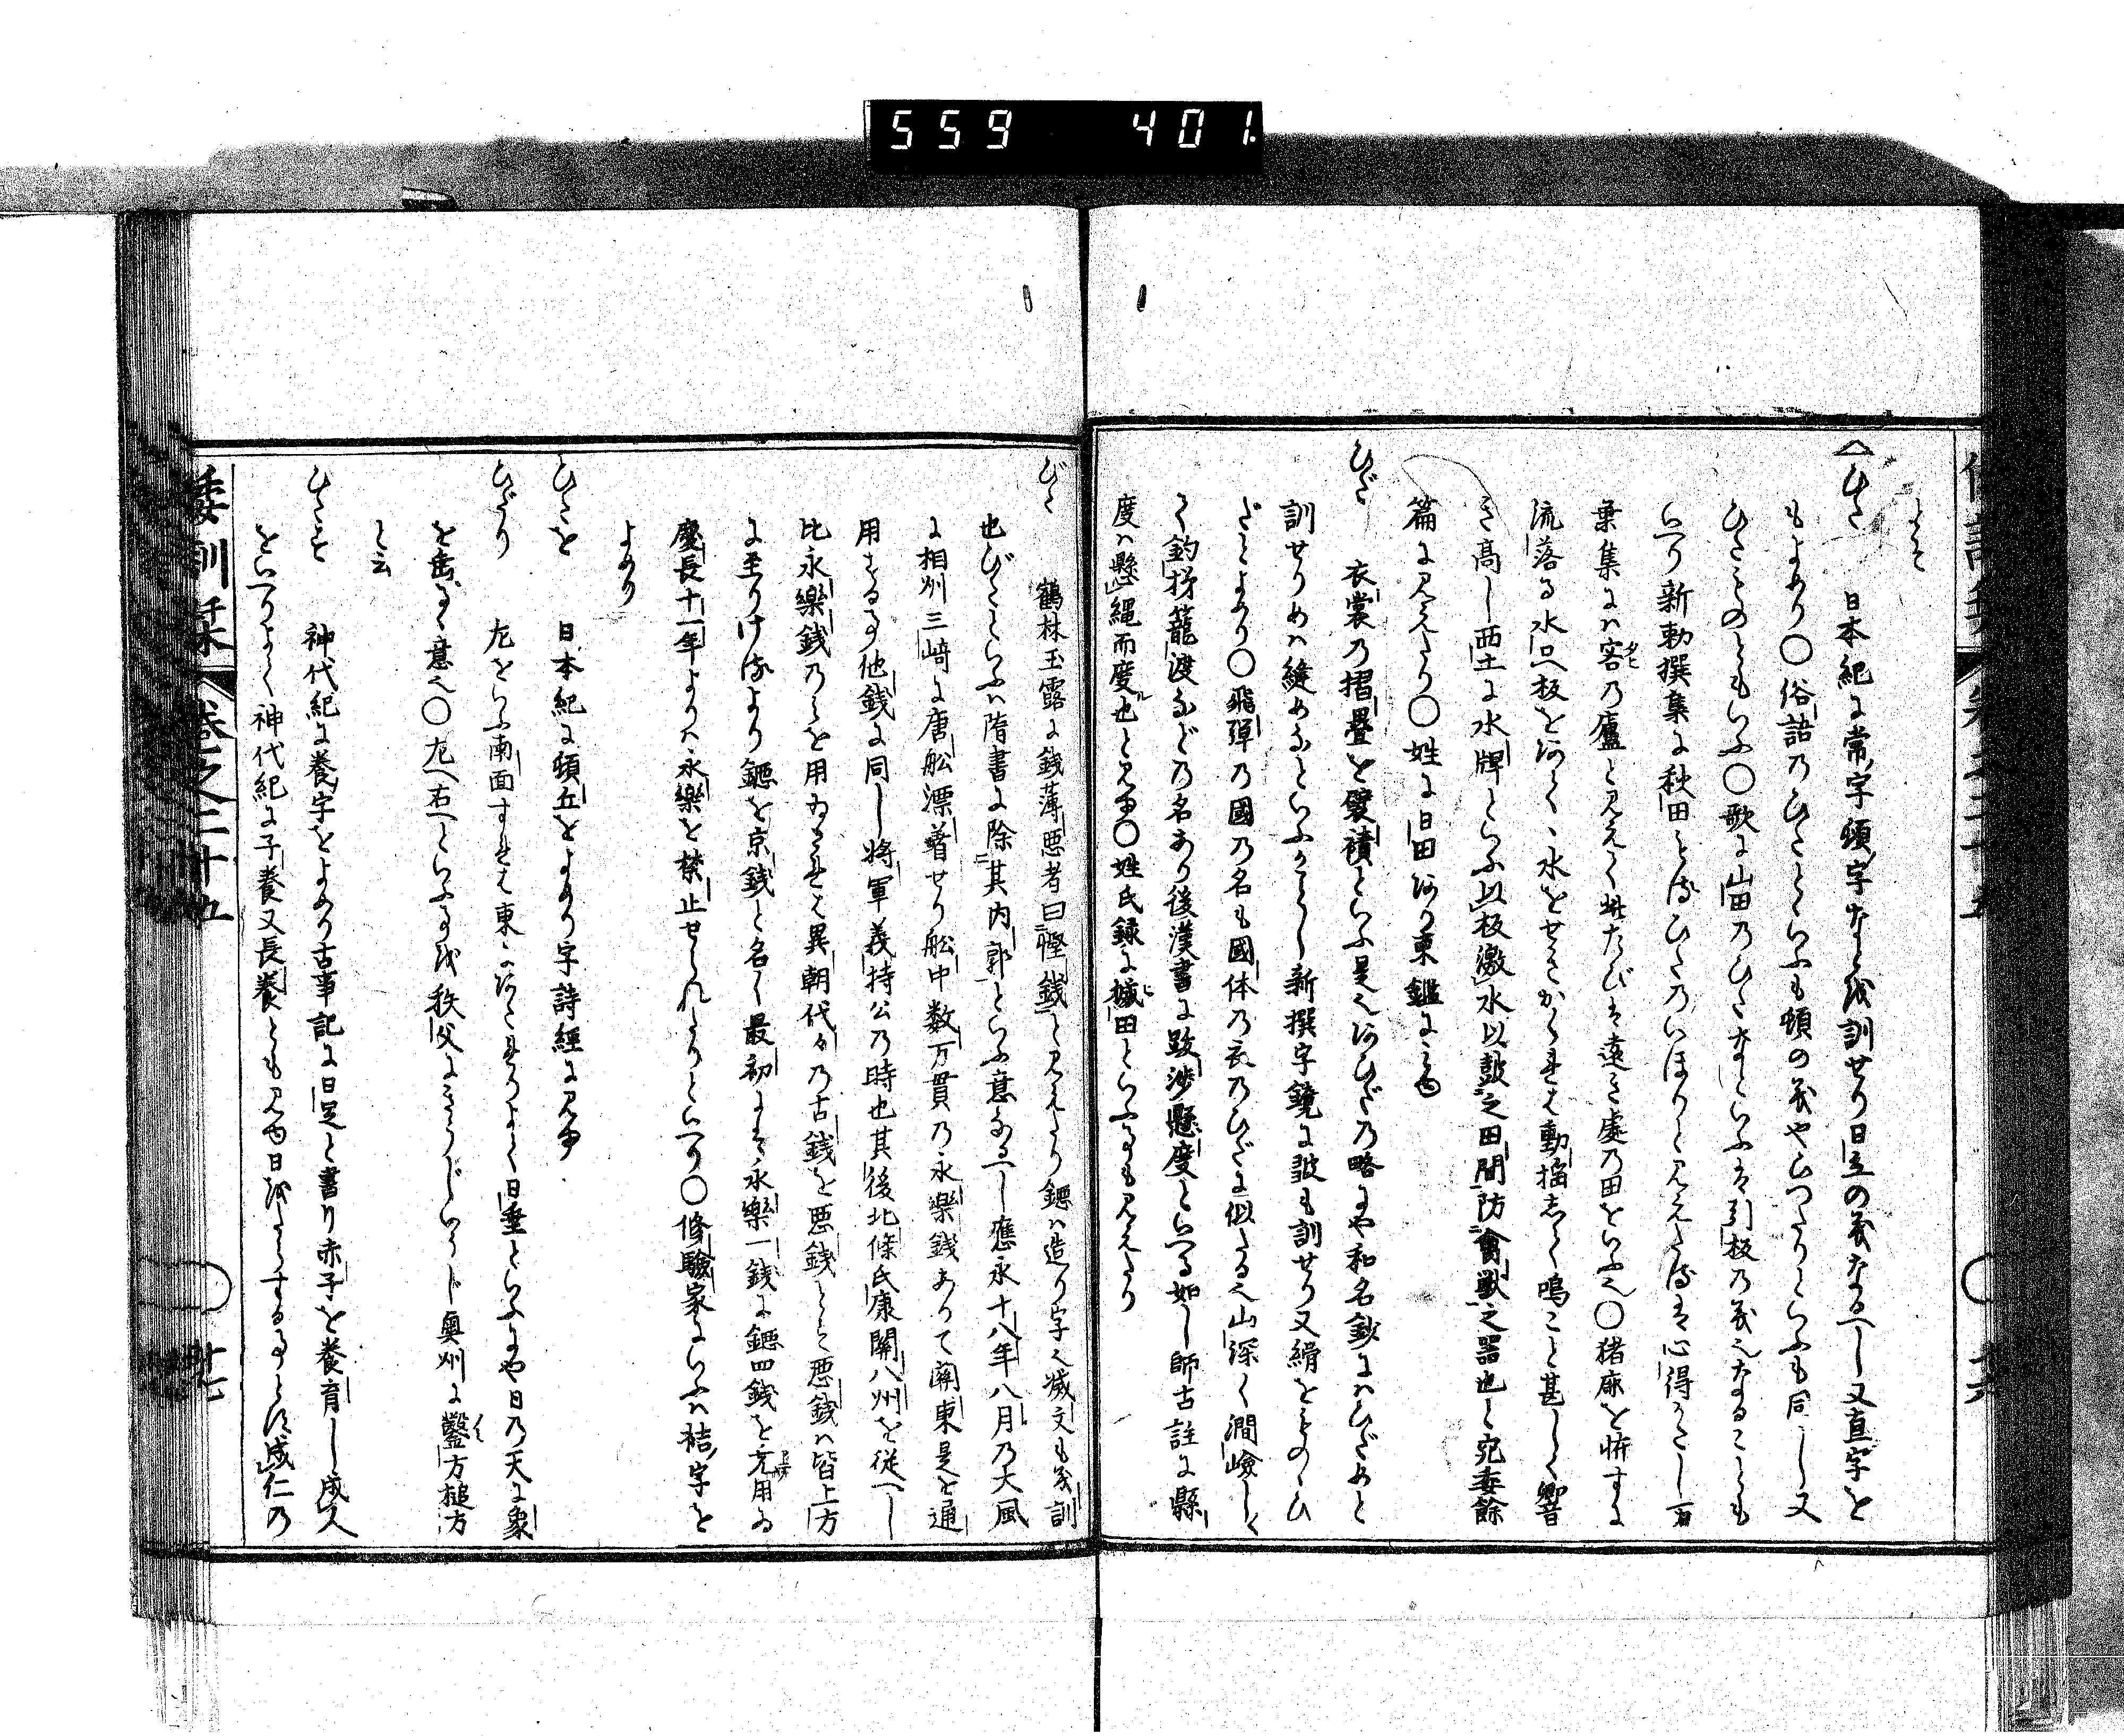 559 401
よそ
ひた 日本紀に常字頓字などを訓せり日立の義なるべし又直字を
もよめり〇俗語のひたといふも頓の義やひつたりといふも同じ又
ひたものともいふ〇歌に山田のひたなどいふは引板の義也なることも
いへり新勅撰集に秋田とるひたのいほりと見えたるは心得がたし万
葉集には客の廬と見えて此たびは遠き處の田をいふ也〇猪麻を怖すに
流落る水口へ板をおく、水をせきかくれば動揺して鳴こと甚しく響
き高し西土に水牌といふ以板激水以鼓之田間防禽獣之器也と宛委餘
篇に見えたり〇姓に日田あり東鑑にみゆ
ひだ 衣裳の摺疊を襞襀といふ是也あひだの略にや和名鈔にはひだめと
訓せりめは縫めなどいふがごとし新撰字鏡に皺も訓せり又縜をものゝひ
だとよめり〇飛彈の國の名も國体の衣のひだに似たる也山深く澗嶮しく
て釣桥籠渡などの名あり後漢書に跋渉懸度といへる如し師古註に縣
度ハ懸縄而度也と見ゆ〇姓氏録に蟻田といふ事も見えたり
びた 鶴林玉露に銭薄悪者曰慳銭と見えたり鐚ハ造り字也減文も義訓
也びたといふハ隋書に除其内郭といふ意なるべし應永十八年八月の大風
に相州三﨑に唐舩漂着せり舩中数万貫の永樂銭ありて関東是を通
用する事他銭に同し将軍義持公の時也其後北條氏康關八州を従へし
比永樂銭のみを用ゐられば異朝代々の古銭を悪銭とす悪銭ハ皆上方
に至りけるより鐚を京銭と名く最初には永樂一銭に鐚四銭を充用ゐ
慶長十一年よりハ永樂を禁止せられたりといへり〇修験家にいふハ袺字を
よめり
ひたを 日本紀に頓丘をよめり字詩經に見ゆ
ひだり 左をいふ南面すれば東にあたれりよて日垂といふにや日の天に象
を垂るゝ意也〇左へ右へといふ事を秩父にきうじらうじ奥州に鑿方槌方
と云
ひたす 神代紀に養字をよめり古事記に日足と書り赤子を養育し成人
をいへりよて神代紀に子養又長養とも見ゆ日をたらする事とぞ成仁の
倭訓栞 巻之二十五 廿七